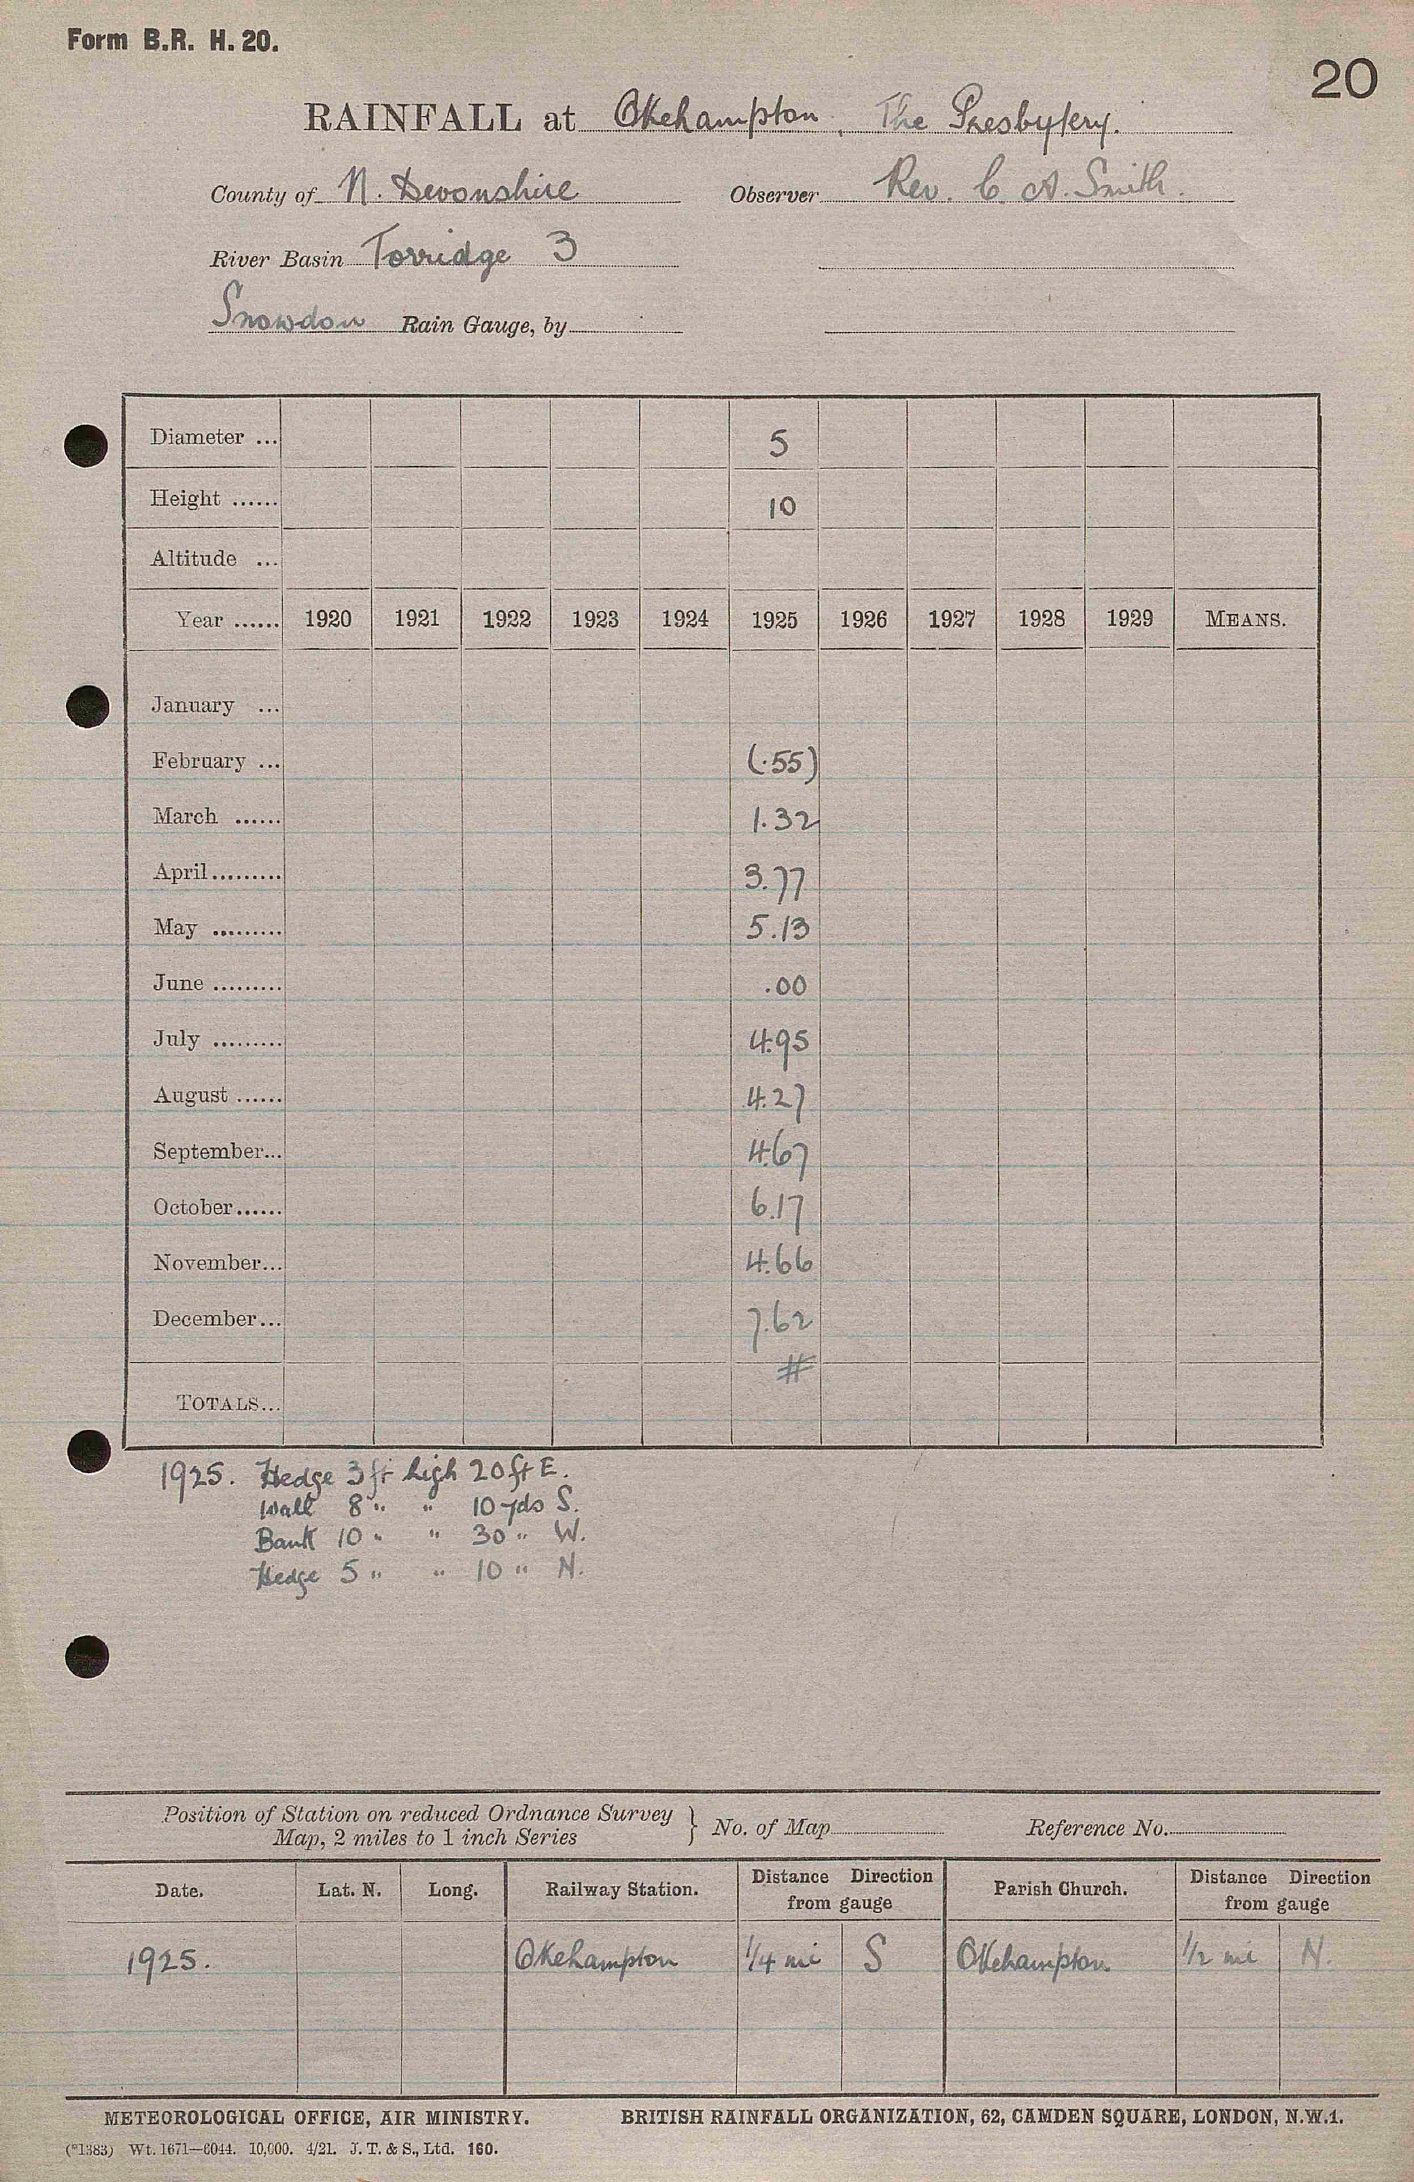 Form B.R. H. 20.
20
RAINFALL at Okehampton, The Presbytery.
County of N. Devonshire Observer Rev. C. A. Smith.
River Basin Torridge 3
Snowdon Rain Gauge, by
Diameter ... 5
Height ...... 10
Altitude ...
Year ...... 1920 1921 1922 1923 1924 1925 1926 1927 1928 1929 MEANS.
January ...
February ... (.55)
March ...... 1.32
April ......... 3.77
May ......... 5.13
June ......... .00
July ......... 4.95
August ...... 4.27
September... 4.67
October...... 6.17
November... 4.66
December... 7.62
#
TOTALS...
1925. Hedge 3 ft high 20 ft E.
Wall 8 " " 10 yds S.
Bank 10 " " 30 " W.
Hedge 5 " " 10 " N.
Position of Station on reduced Ordnance Survey
Map, 2 miles to 1 inch Series } No. of Map Reference No.
Date. Lat. N. Long. Railway Station. Distance Direction from gauge Parish Church. Distance Direction from gauge
1925. Okehampton 1/4 mi S Okehampton 1/2 mi N.
METEOROLOGICAL OFFICE, AIR MINISTRY. BRITISH RAINFALL ORGANIZATION, 62, CAMDEN SQUARE, LONDON, N.W.1.
(*1383) Wt. 1671—6044. 10,000. 4/21. J. T. & S., Ltd. 160.